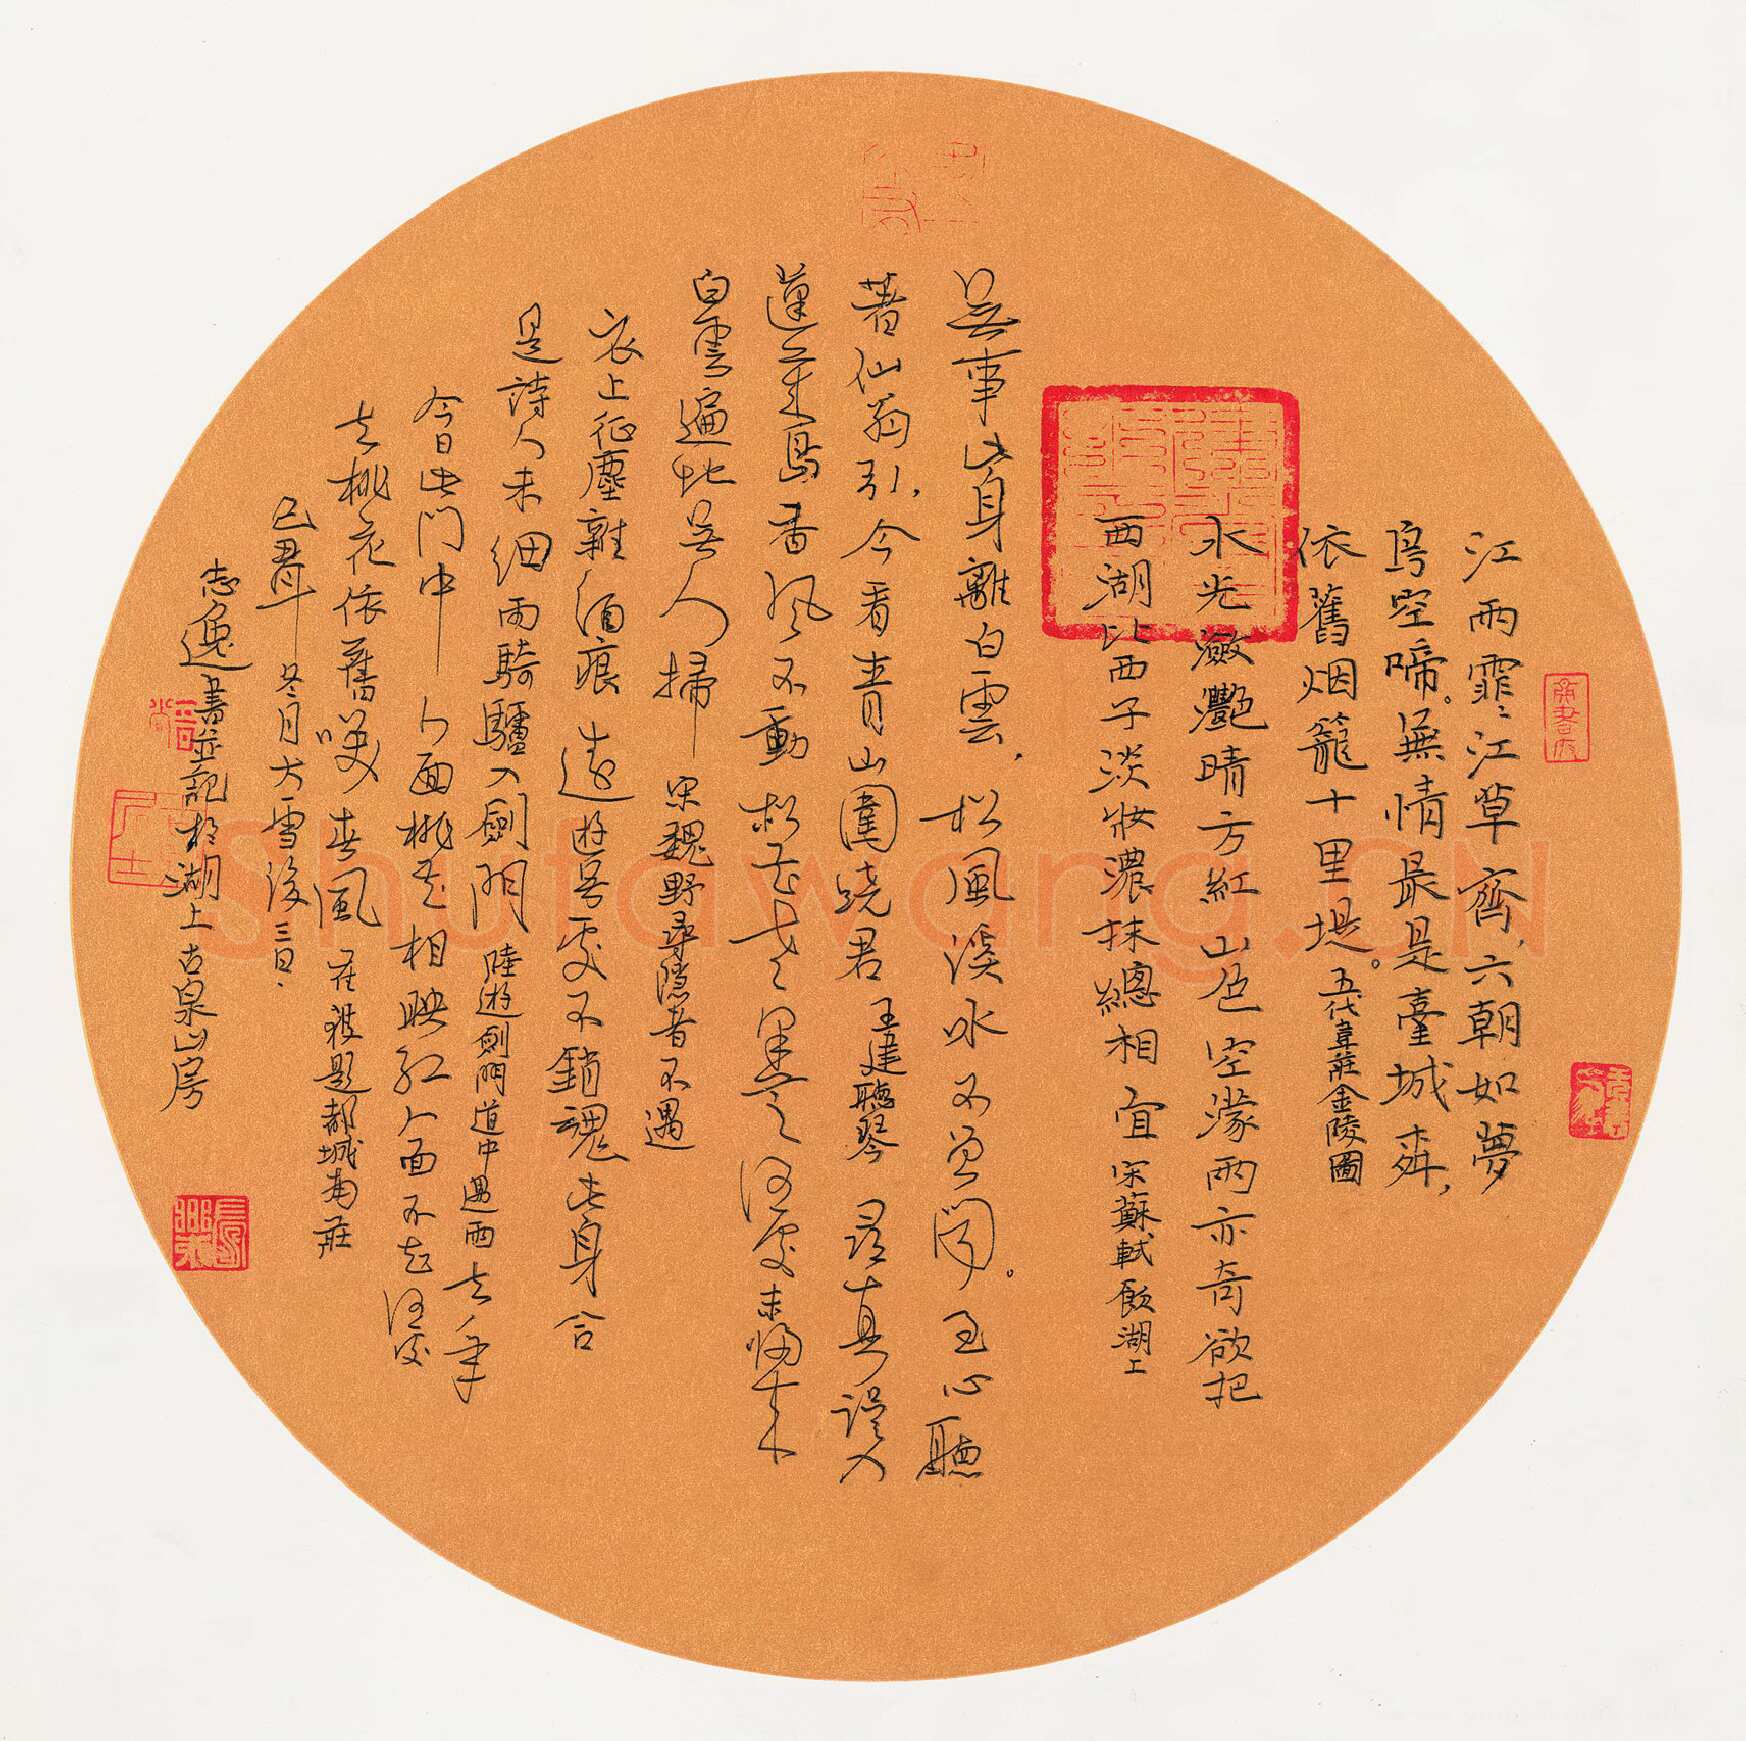 江雨霏霏江草齊，六朝如夢
鳥空啼。無情最是臺城柳，
依舊烟籠十里堤。五代韋莊金陵圖
水光瀲灩晴方紅山色空濛雨亦奇欲把
西湖比西子淡妝濃抹總相宜 宋蘇軾飲湖上
無事此身離白雲，松風溪水不曾聞。至心聽
著仙翁引，今看青山圍繞君 王建聽琴 尋真誤入
蓬萊島香風不動松花老采芝何處未歸來
白雲遍地無人掃 宋魏野尋隱者不遇
衣上征塵雜酒痕遠遊無處不銷魂此身合
是詩人未細雨騎驢入劍門 陸遊劍門道中遇雨 去年
今日此門中人面桃花相映紅人面不知何處
去桃花依舊笑春風 崔護題都城南莊
己丑年冬月大雪後三日
志逸書並記於湖上古泉山房
Shufawang.CN